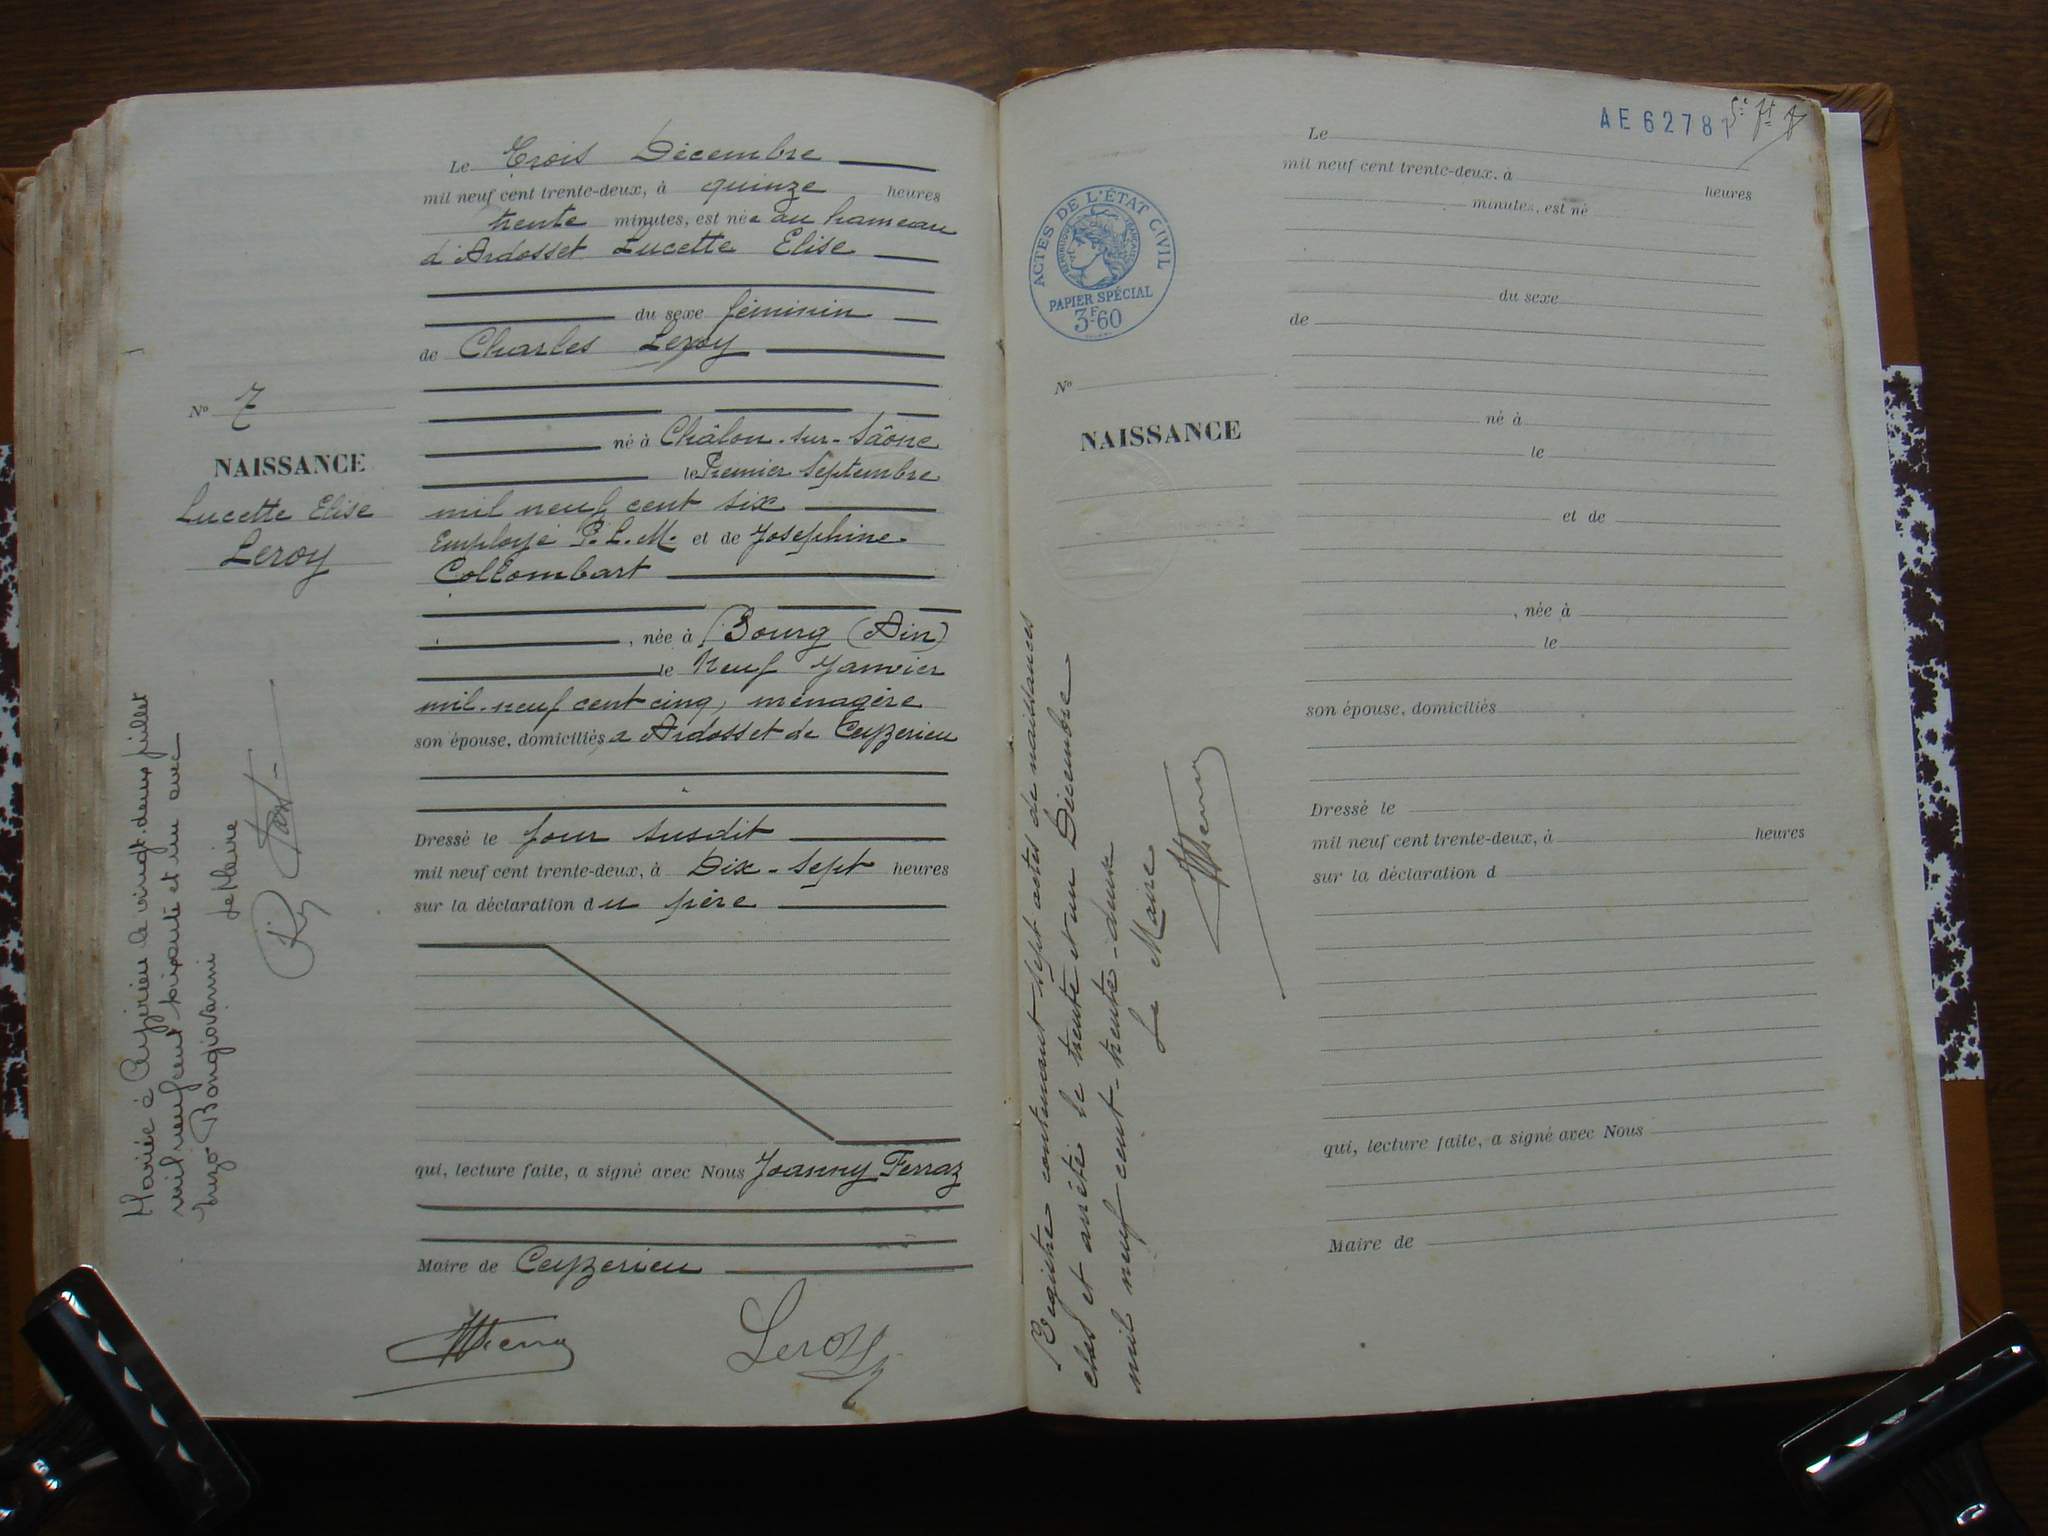 Le Trois Décembre
mil neuf cent trente-deux, à quinze heures
trente minutes, est née au hameau
d'Ardosset Lucette Elise
du sexe féminin
de Charles Leroy
né à Châlon-sur-Saône
le Premier Septembre
mil neuf cent six
Employé P.L.M. et de Joséphine
Collombart
, née à Bourg (Ain)
le Neuf Janvier
mil-neuf cent cinq, ménagère
son épouse, domiciliés à Ardosset de Ceyzerieu
Dressé le jour susdit
mil neuf cent trente-deux, à Dix-sept heures
sur la déclaration du père
qui, lecture faite, a signé avec Nous Joanny Ferraz
Maire de Ceyzerieu
Leroy
No 7
NAISSANCE
Lucette Elise
Leroy
Mariée à Ceyzérieu le vingt-deux juillet
mil neuf cent cinquante et un avec
Enzo Bongiovanni
Le Maire
AE 6278
ACTES DE L'ÉTAT CIVIL
RÉPUBLIQUE FRANÇAISE
PAPIER SPÉCIAL
3F60
No
NAISSANCE
Registre contenant sept actes de naissances
clos et arrêté le trente et un Décembre
mil neuf cent-trente-deux
Le Maire
Le
mil neuf cent trente-deux, à heures
minutes, est né
du sexe
de
né à
le
et de
, née à
le
son épouse, domiciliés
Dressé le
mil neuf cent trente-deux, à heures
sur la déclaration d
qui, lecture faite, a signé avec Nous
Maire de